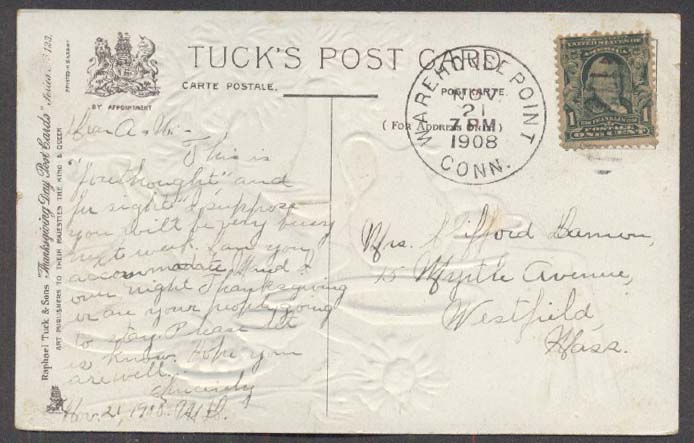 Raphael Tuck & Sons "Thanksgiving Day Post Cards" Series No 123.
ART PUBLISHERS TO THEIR MAJESTIES THE KING & QUEEN
BY APPOINTMENT
TUCK'S POST CARD
CARTE POSTALE.
POSTKARTE.
( FOR ADDRESS ONLY )
WAREHOUSE POINT
NOV
21
7 PM
1908
CONN.
UNITED STATES OF AMERICA
1
FRANKLIN
POSTAGE
ONE CENT
This is
"forethought" and
sight" I suppose
you will be very busy
next week. Can you
accommodate
over night Thanksgiving
or are your people going
to stay. Please let
us know. Hope you
are well.
Sincerely
Nov. 21, 1908.
Mrs. Clifford Damon,
15 Myrtle Avenue,
Westfield,
Mass.